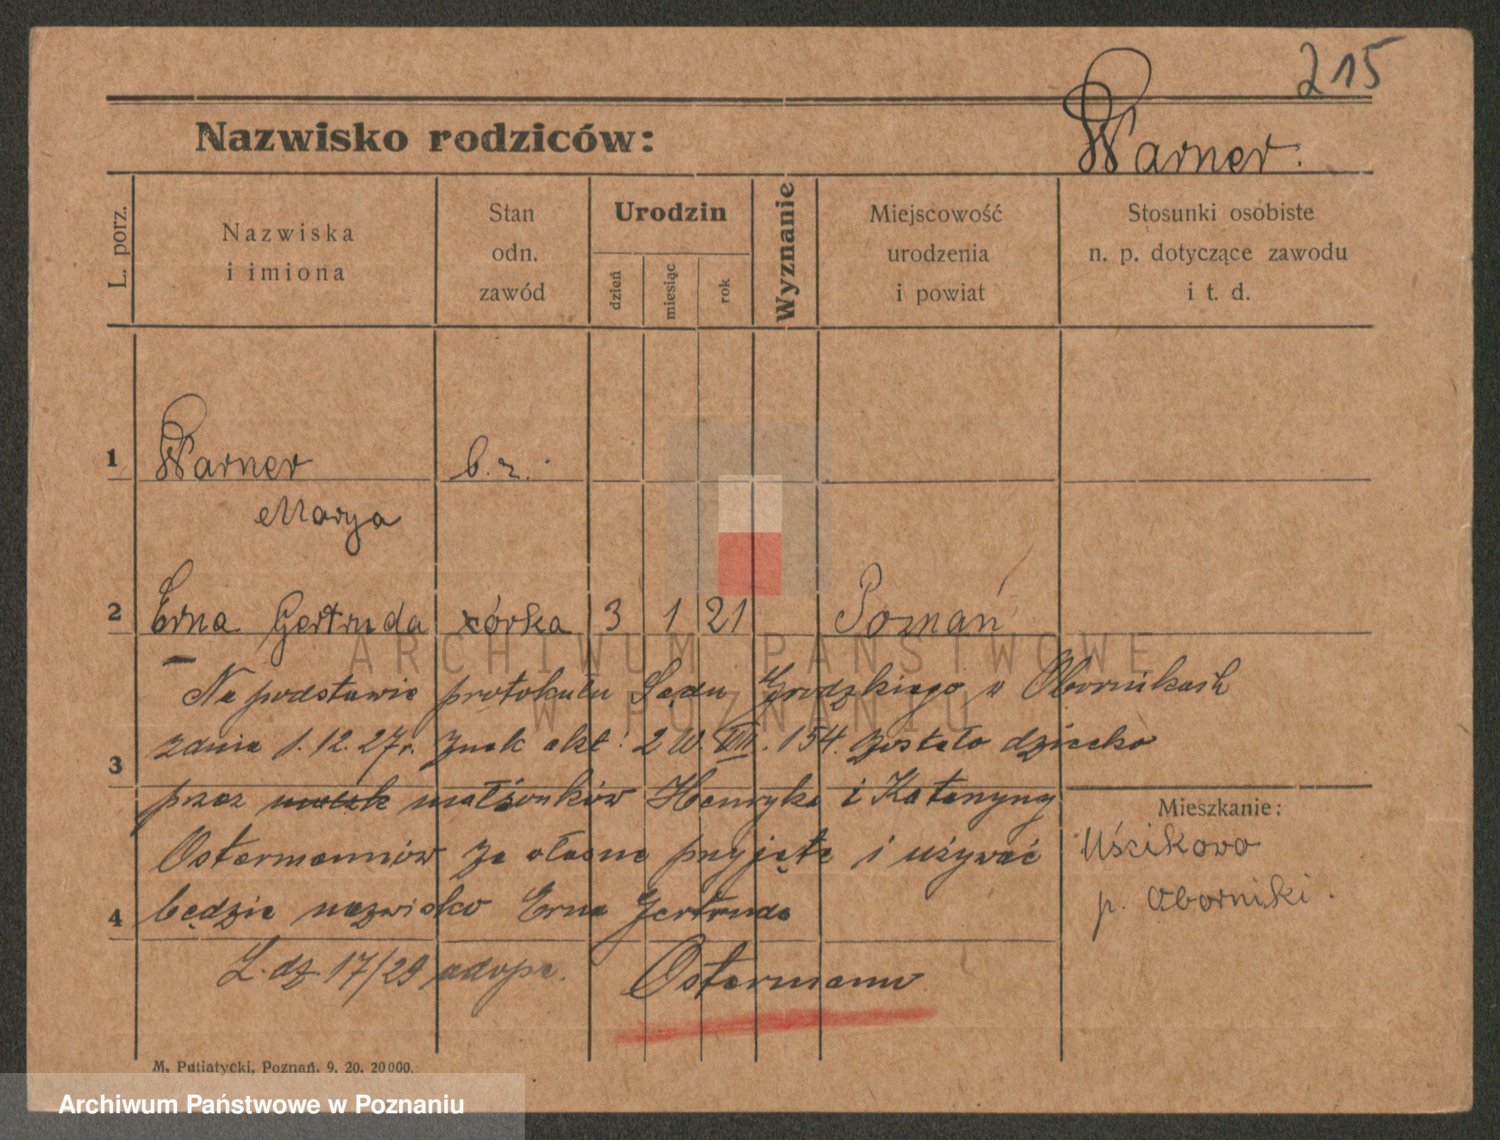 215
Nazwisko rodziców: Warner.
L. porz.
Nazwiska
i imiona
Stan
odn.
zawód
Urodzin
dzień
miesiąc
rok
Wyznanie
Miejscowość
urodzenia
i powiat
Stosunki osobiste
n. p. dotyczące zawodu
i t. d.
1 Warner b. z.
Marya
2 Erna Gertruda córka 3 1 21 Poznań
ARCHIWUM PAŃSTWOWE
W POZNANIU
Na podstawie protokułu Sądu Grodzkiego w Obornikach
z dnia 1.12.27r. Znak akt: 2 W. VIII. 154. zostało dziecko
3
przez małżonków Henryka i Katarzyny
Ostermannów za własne przyjęte i używać
4 będzie nazwisko Erna Gertruda
L. dz. 17/29 adopc. Ostermann
Mieszkanie:
Uścikowo
p. Oborniki.
M. Putiatycki, Poznań. 9. 20. 20000.
Archiwum Państwowe w Poznaniu